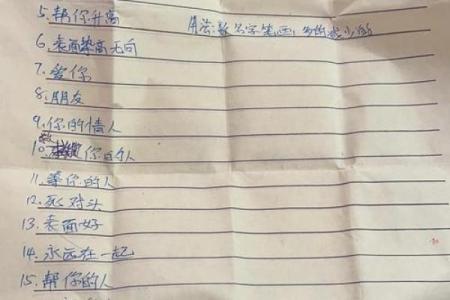 5.帮你升高
用法:数名字笔画,多的减少的
6.表面
7.爱你
8.朋友
9.你的情人
10.你的人
11.等你的人
12.死对头
13.表面好
14.永远在一起
15.帮你的人